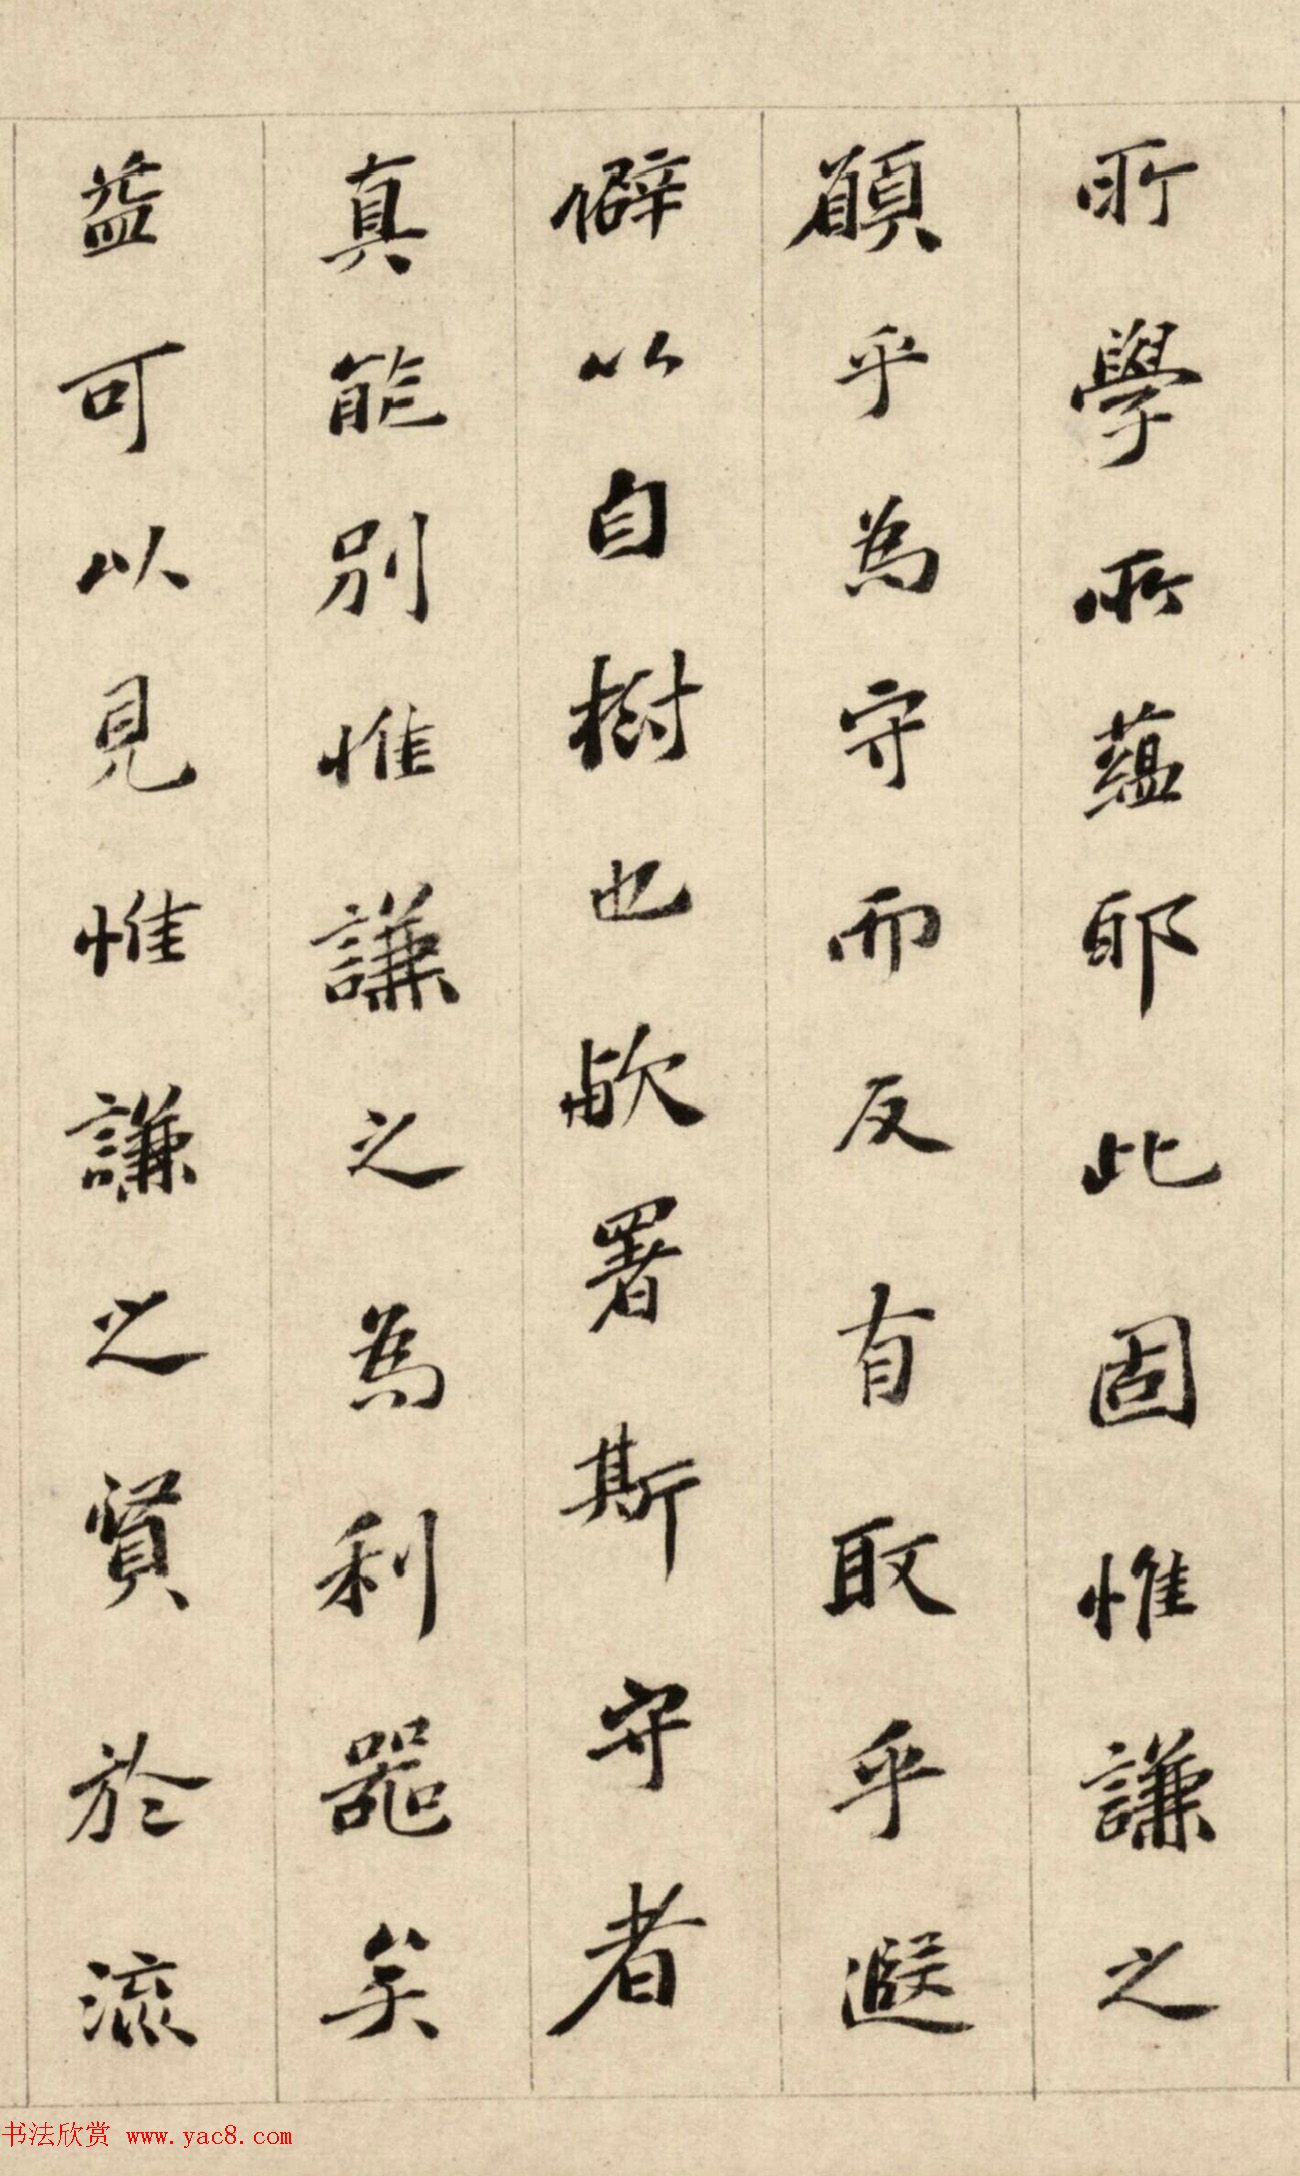 所學所蘊耶此固惟謙之
願乎為守而反有取乎遐
僻以自樹也歟署斯守者
真能別惟謙之為利器矣
益可以見惟謙之賢於流
书法欣赏 www.yac8.com